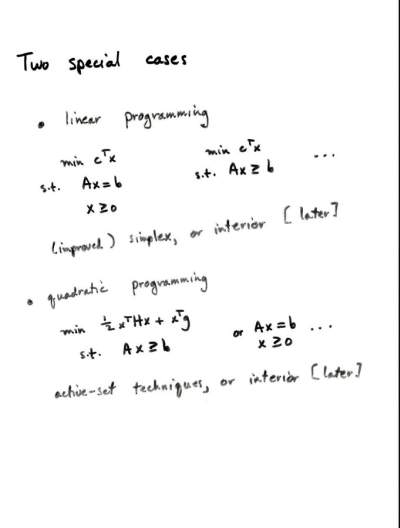 Two special cases
• linear programming
min cᵀx min cᵀx ...
s.t. Ax = b s.t. Ax ≥ b
x ≥ 0
(improved) simplex, or interior [later]
• quadratic programming
min ½ xᵀHx + xᵀg or Ax = b ...
s.t. Ax ≥ b x ≥ 0
active-set techniques, or interior [later]